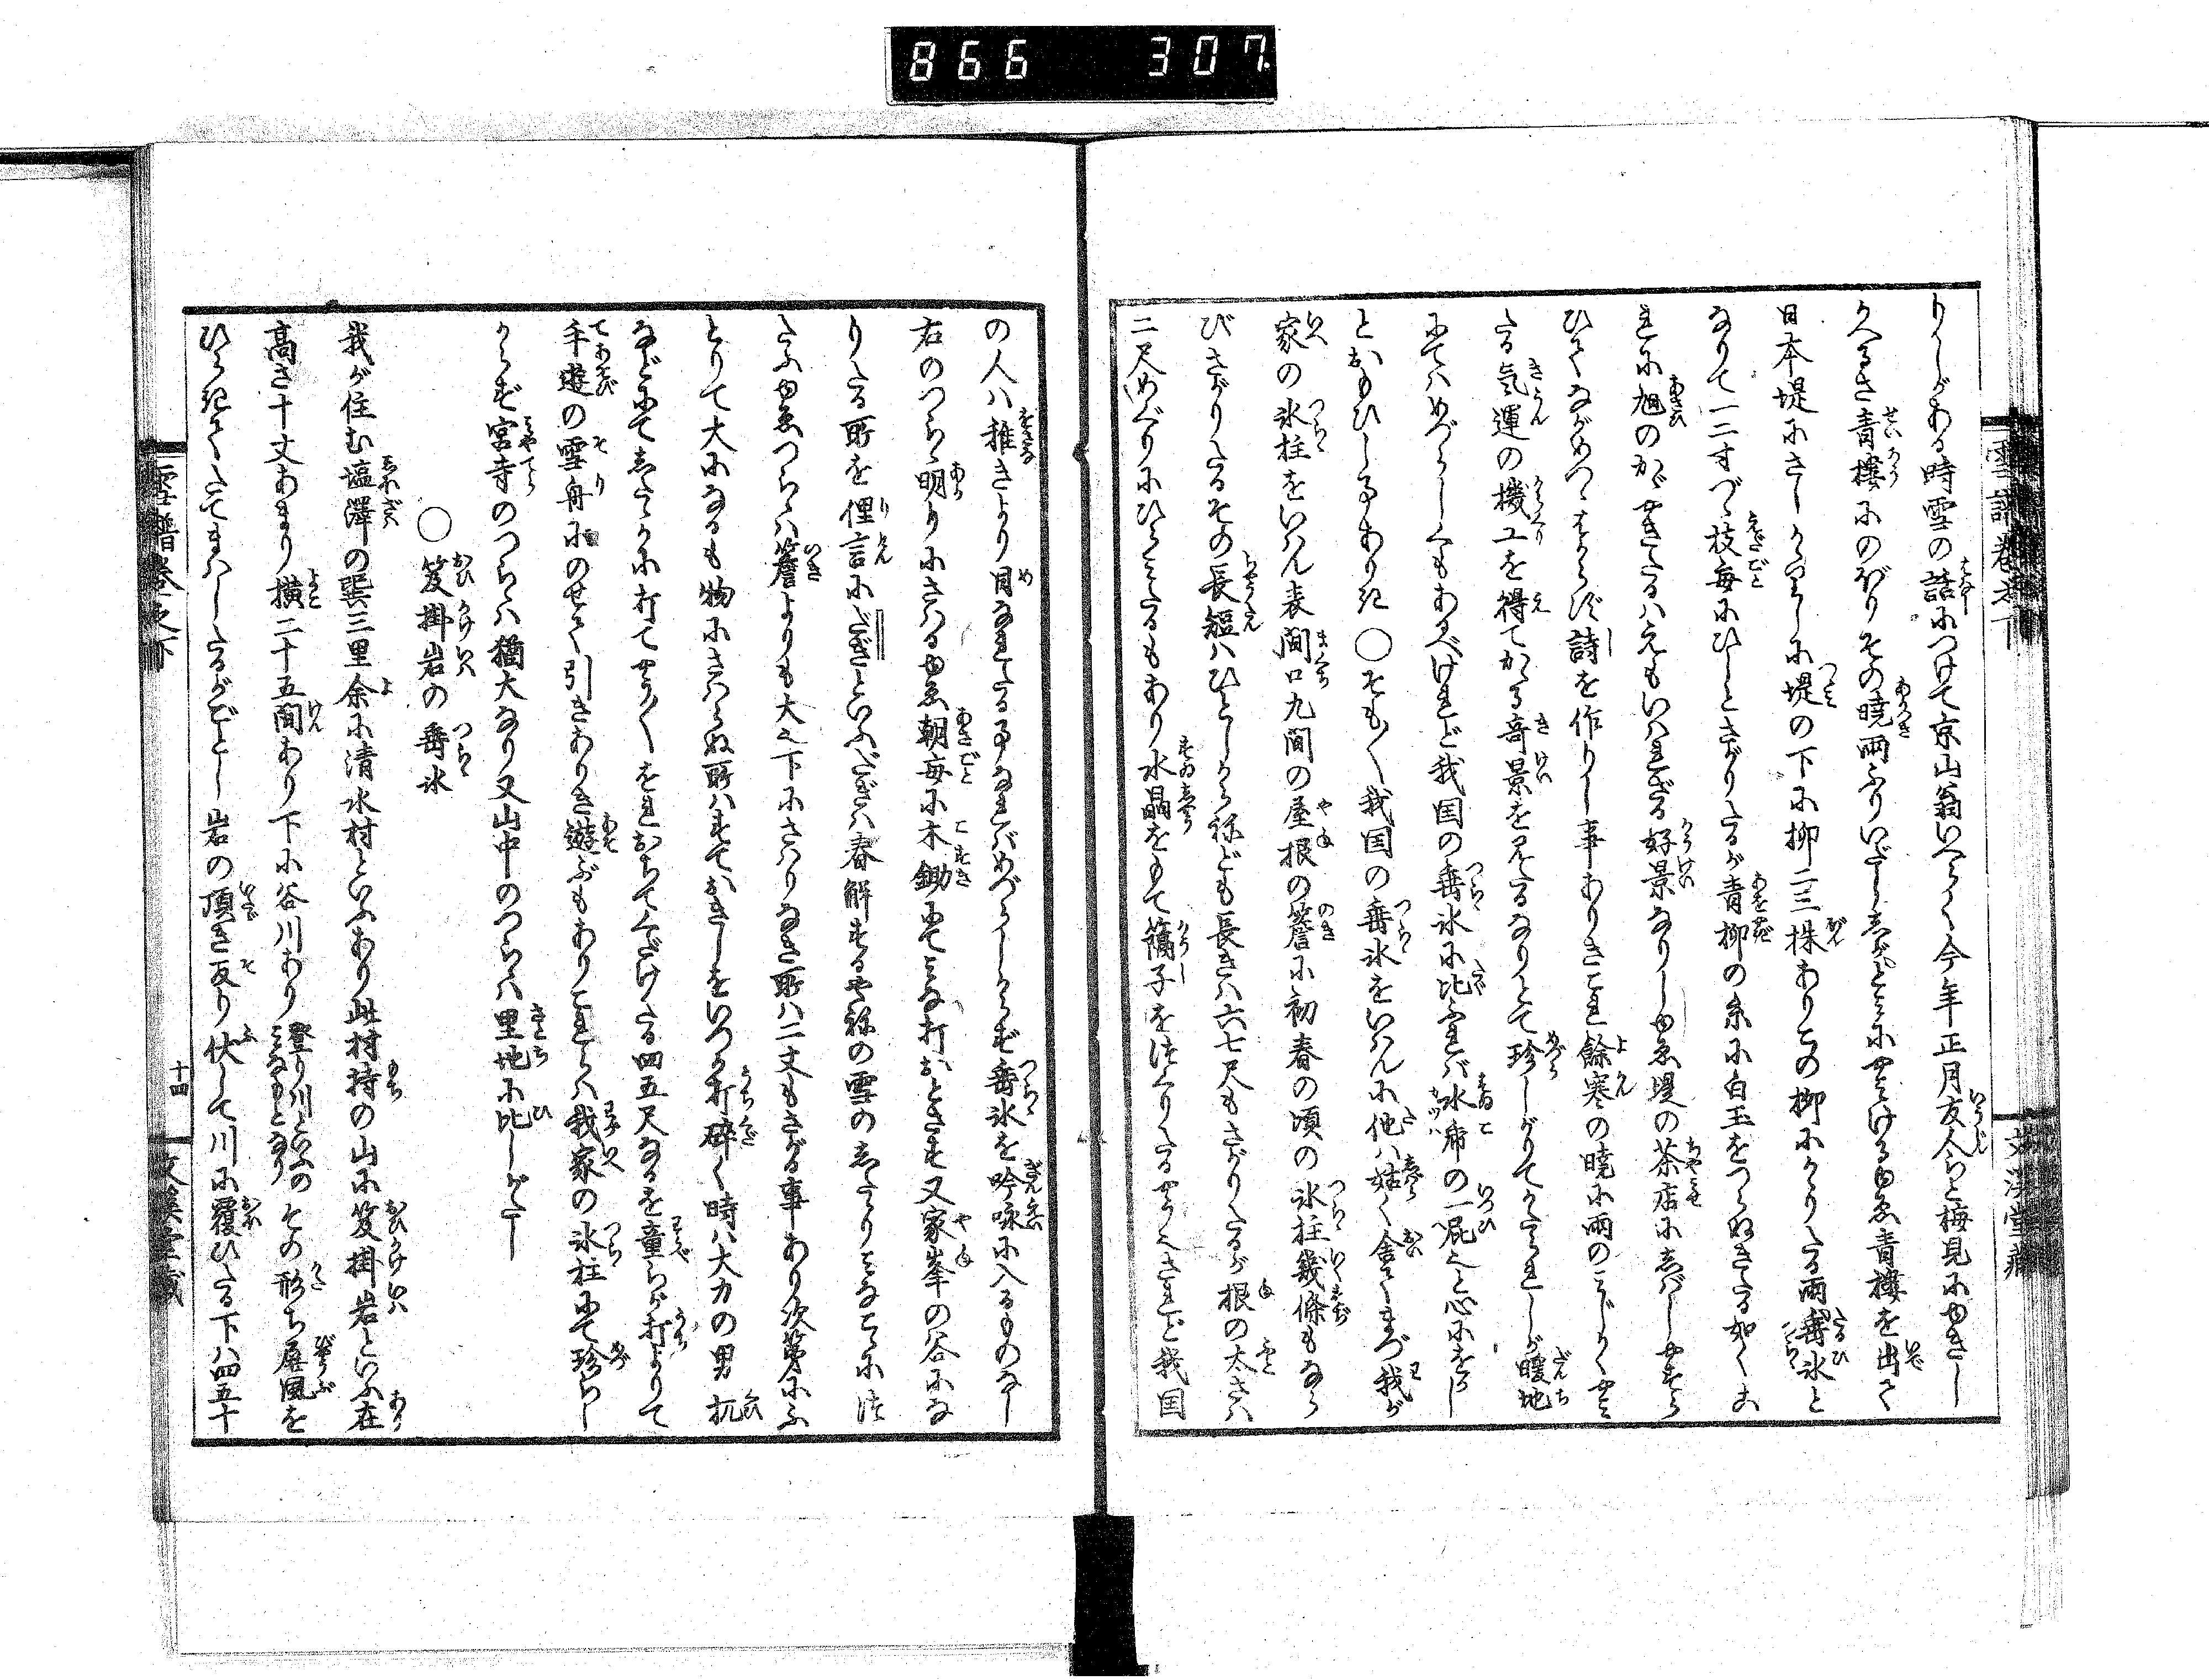 866 307.
雪譜卷之下
文溪堂藏
りしがある時雪の話につけて京山翁いへらく今年正月友人らと梅見にゆきし
かへるさ青樓にのぼりその曉雨ふりいだししがとみにやみけるゆゑ青樓を出て
日本堤にさしかゝりしに堤の下に柳二三株ありこの柳にかゝりたる雨垂氷と
なりて一二寸づゝ枝毎にひしとさがりたるが青柳の糸に白玉をつらぬきたる如くま
れに旭のかゞやきたるはえもいはれざる好景なりしゆゑ堤の茶店にしばしやすら
ひてながめつゝはからず詩を作りし事ありきこれ餘寒の曉に雨のこ
たる気運の機工を得てかゝる竒景を見たるなりとて珍しがりてかたられしが暖地
にてはめづらしくもあるべけれど我国の垂氷に比ぶれば水虎の一屁也と心にをかし
とおもひし事ありき○そも〳〵我国の垂氷をいはんに他は姑く舎てまづ我が
家の氷柱をいはん表間口九間の屋根の簷に初春の頃の氷柱幾條もなら
びさがりたるその長短はひとしからねども長きは六七尺もさがりたるが根の太さは
二尺めぐりにひらみたるもあり水晶をもて篩子をつくりたるやうなりされど我国
の人は稚きより目なれたる事なればめづらしからず垂氷を吟咏に入るものなし
右のつらゝ明りにさはるゆゑ朝毎に木鋤にてみな打おとさす又家峯の谷にな
りたる所を俚言にだぎといふだぎは春解するやねの雪のしたゝりみなこゝにつ
たふゆゑつらゝは簷よりも大也下にさはりなき所は二丈もさがる事あり次第にふ
とりて大になるも物にさはらぬ所はすておきしをいつか打碎く時は大力の男杭
などにてしたゝかに打てやう〳〵をれおちてくだけたる四五尺なるを童らが打よりて
手遊の雪舟にのせて引きありき遊ぶもありこれらは我家の氷柱にて珍らし
からず宮寺のつらゝは猶大なり又山中のつらゝは里地に比しがたし
○笈掛岩の垂氷
我が住む塩澤の巽三里余に清水村といふあり此村持の山に笈掛岩といふ在
高さ十丈あまり横二十五間あり下に谷川あり登り川といふのみなもとなりその形ち屏風を
ひらきてたてまはしたるがごとし岩の頂き反り伏して川に覆ひたる下は四五十
雪譜卷之下
十四
文溪堂藏